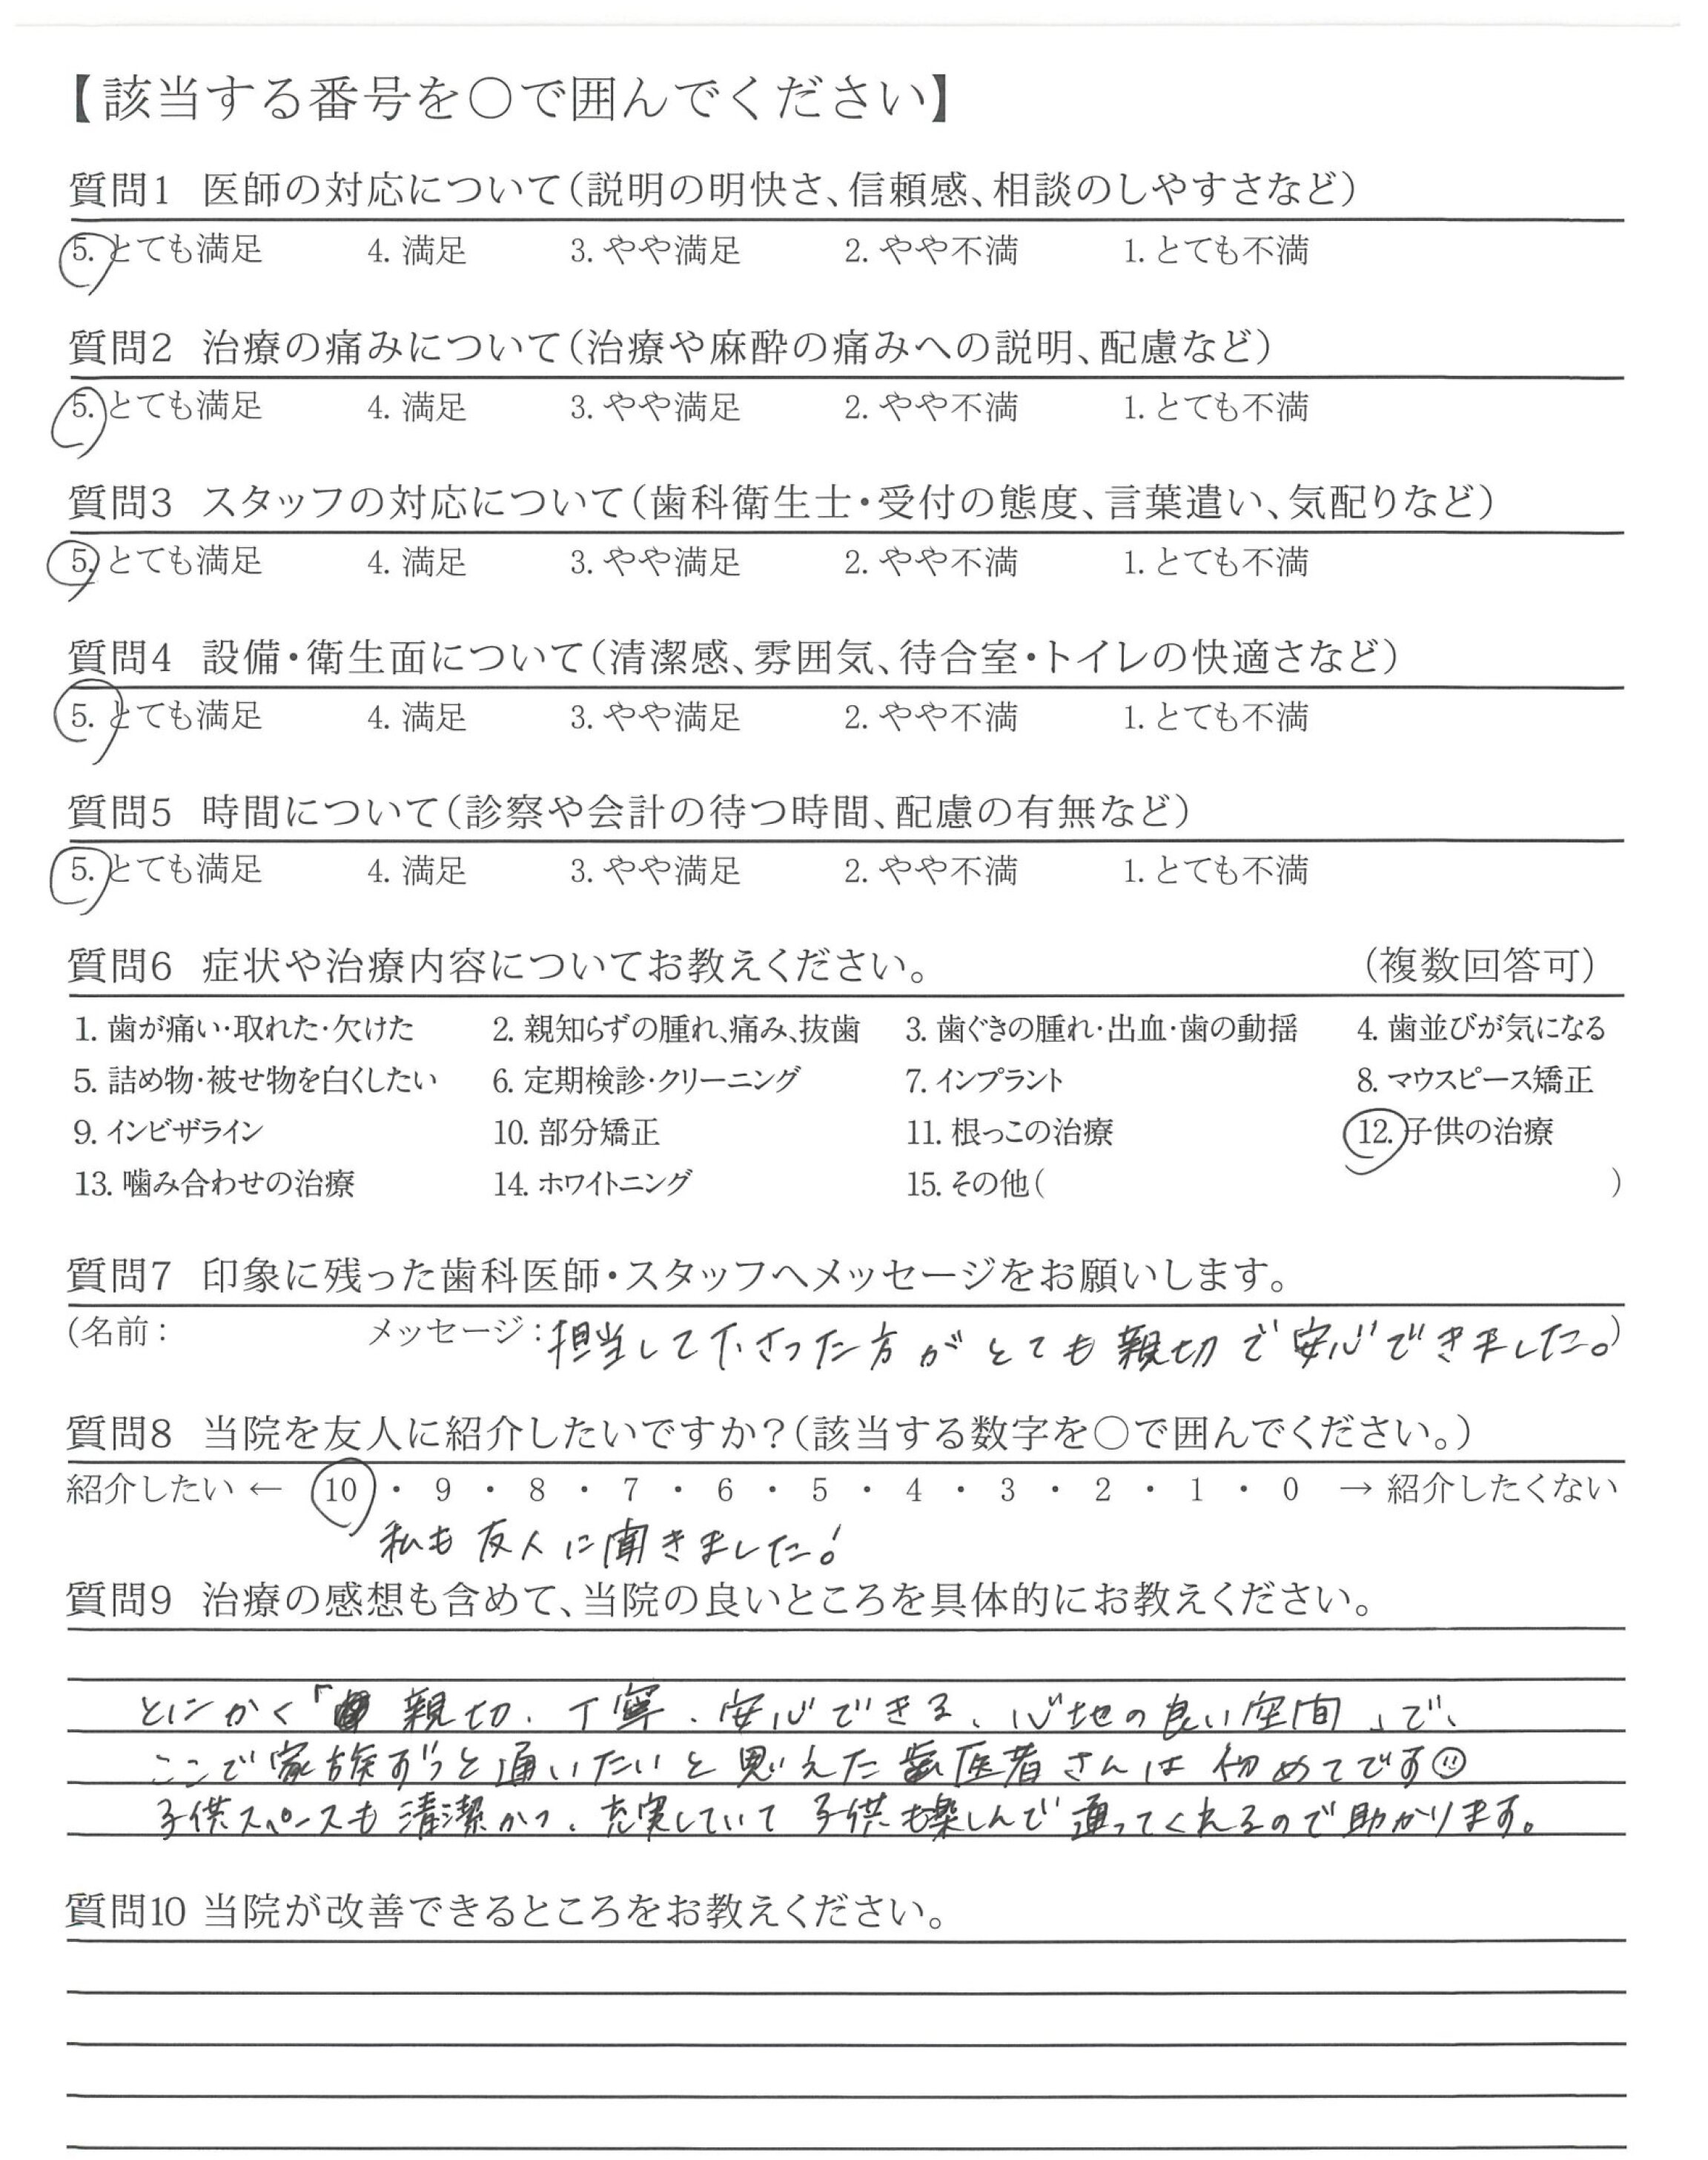 【該当する番号を○で囲んでください】
質問1 医師の対応について(説明の明快さ、信頼感、相談のしやすさなど)
5. とても満足 4. 満足 3. やや満足 2. やや不満 1. とても不満
質問2 治療の痛みについて(治療や麻酔の痛みへの説明、配慮など)
5. とても満足 4. 満足 3. やや満足 2. やや不満 1. とても不満
質問3 スタッフの対応について(歯科衛生士・受付の態度、言葉遣い、気配りなど)
5. とても満足 4. 満足 3. やや満足 2. やや不満 1. とても不満
質問4 設備・衛生面について(清潔感、雰囲気、待合室・トイレの快適さなど)
5. とても満足 4. 満足 3. やや満足 2. やや不満 1. とても不満
質問5 時間について(診察や会計の待つ時間、配慮の有無など)
5. とても満足 4. 満足 3. やや満足 2. やや不満 1. とても不満
質問6 症状や治療内容についてお教えください。 (複数回答可)
1. 歯が痛い・取れた・欠けた 2. 親知らずの腫れ、痛み、抜歯 3. 歯ぐきの腫れ・出血・歯の動揺 4. 歯並びが気になる
5. 詰め物・被せ物を白くしたい 6. 定期検診・クリーニング 7. インプラント 8. マウスピース矯正
9. インビザライン 10. 部分矯正 11. 根っこの治療 12. 子供の治療
13. 噛み合わせの治療 14. ホワイトニング 15. その他( )
質問7 印象に残った歯科医師・スタッフへメッセージをお願いします。
(名前: メッセージ:担当して下さった方がとても親切で安心できました。)
質問8 当院を友人に紹介したいですか?(該当する数字を○で囲んでください。)
紹介したい ← 10 ・ 9 ・ 8 ・ 7 ・ 6 ・ 5 ・ 4 ・ 3 ・ 2 ・ 1 ・ 0 → 紹介したくない
私も友人に聞きました!
質問9 治療の感想も含めて、当院の良いところを具体的にお教えください。
とにかく「親切、丁寧、安心できる、心地の良い空間」で、
ここで家族ずっと通いたいと思えた歯医者さんは初めてです☺
子供スペースも清潔かつ、充実していて子供も楽しんで通ってくれるので助かります。
質問10 当院が改善できるところをお教えください。